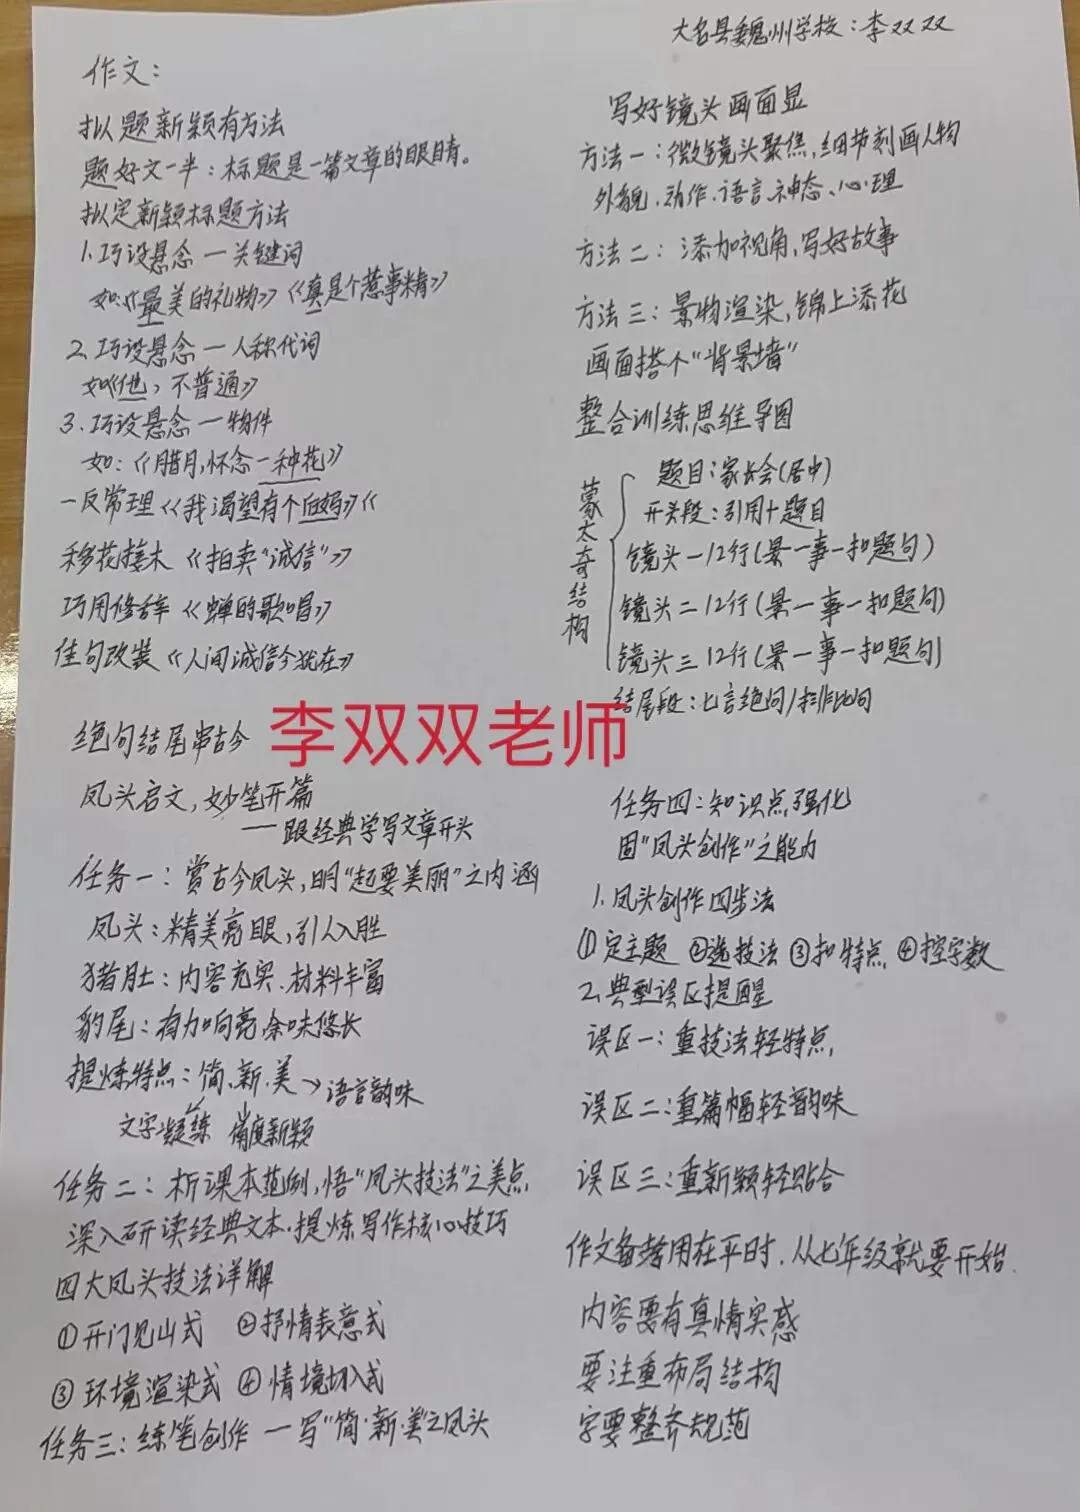 大名县魏州学校：李双双
作文：
拟题新颖有方法
题好文一半：标题是一篇文章的眼睛。
拟定新颖标题方法
1.巧设悬念一关键词
如:《最美的礼物》《真是个惹事精》
2.巧设悬念一人称代词
如《他，不普通》
3.巧设悬念一物件
如：《腊月,怀念一种花》
一反常理《我渴望有个后妈》《
移花接木《拍卖“诚信”》
巧用修辞《蝉的歌唱》
佳句改装《人间诚信今犹在》
绝句结尾串古今
凤头启文,妙笔开篇
——跟经典学写文章开头
任务一：赏古今凤头,明“起要美丽”之内涵
凤头：精美亮眼,引人入胜
猪肚：内容充实.材料丰富
豹尾：有力响亮,余味悠长
提炼特点：简、新.美→语言韵味
文字凝练 角度新颖
任务二：析课本范例,悟“凤头技法”之美点,
深入研读经典文本.提炼写作核心技巧
四大凤头技法详解
①开门见山式 ②抒情表意式
③环境渲染式 ④情境切入式
任务三：练笔创作 一写“简·新·美”之凤头
写好镜头画面显
方法一：微镜头聚焦,细节刻画人物
外貌、动作、语言、神态、心理
方法二：添加视角,写好故事
方法三：景物渲染,锦上添花
画面搭个“背景墙”
整合训练思维导图
蒙太奇结构
题目：家长会(居中)
开头段：引用+题目
镜头一12行(景一事一扣题句)
镜头二12行(景一事一扣题句)
镜头三12行(景一事一扣题句)
结尾段：七言绝句/排比句
李双双老师
任务四：知识点强化
固“凤头创作”之能力
1.凤头创作四步法
①定主题 ②选技法 ③扣特点 ④控字数
2.典型误区提醒
误区一：重技法轻特点,
误区二：重篇幅轻韵味
误区三：重新颖轻贴合
作文备考用在平时.从七年级就要开始.
内容要有真情实感
要注重布局结构
字要整齐规范